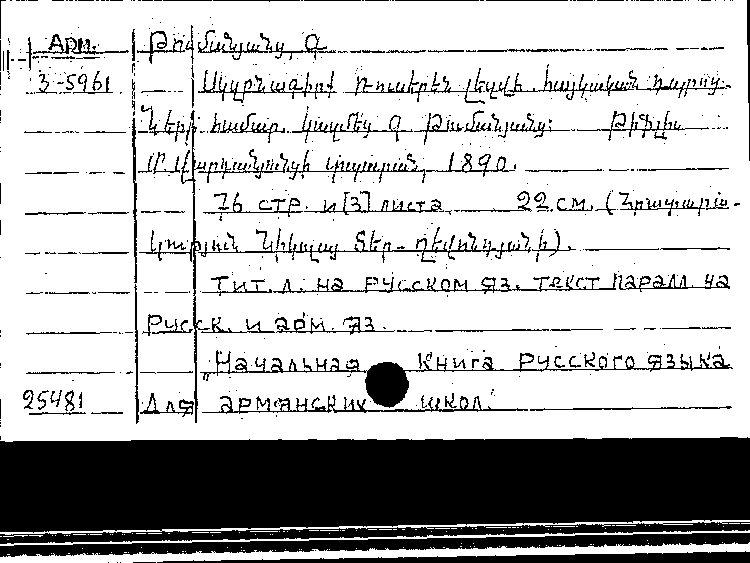 Арм. Թումանյանց, Գ
3-5961 Սկզբնագիրք ռուսերէն լեզվի հայկական դպրոց-
ների համար. կազմեց Գ Թումանյանց: Թիֆլիս
Մ. Վարդանյանցի տպարան, 1890.
76 стр. и [3] листа 22 см. (Հրատարա-
կություն Նիկողայ Տեր-Ղևոնդյանի).
Тит. л. на русском яз. текст паралл. на
русск. и арм. яз.
„Начальная книга русского языка
25481 для армянских школ.